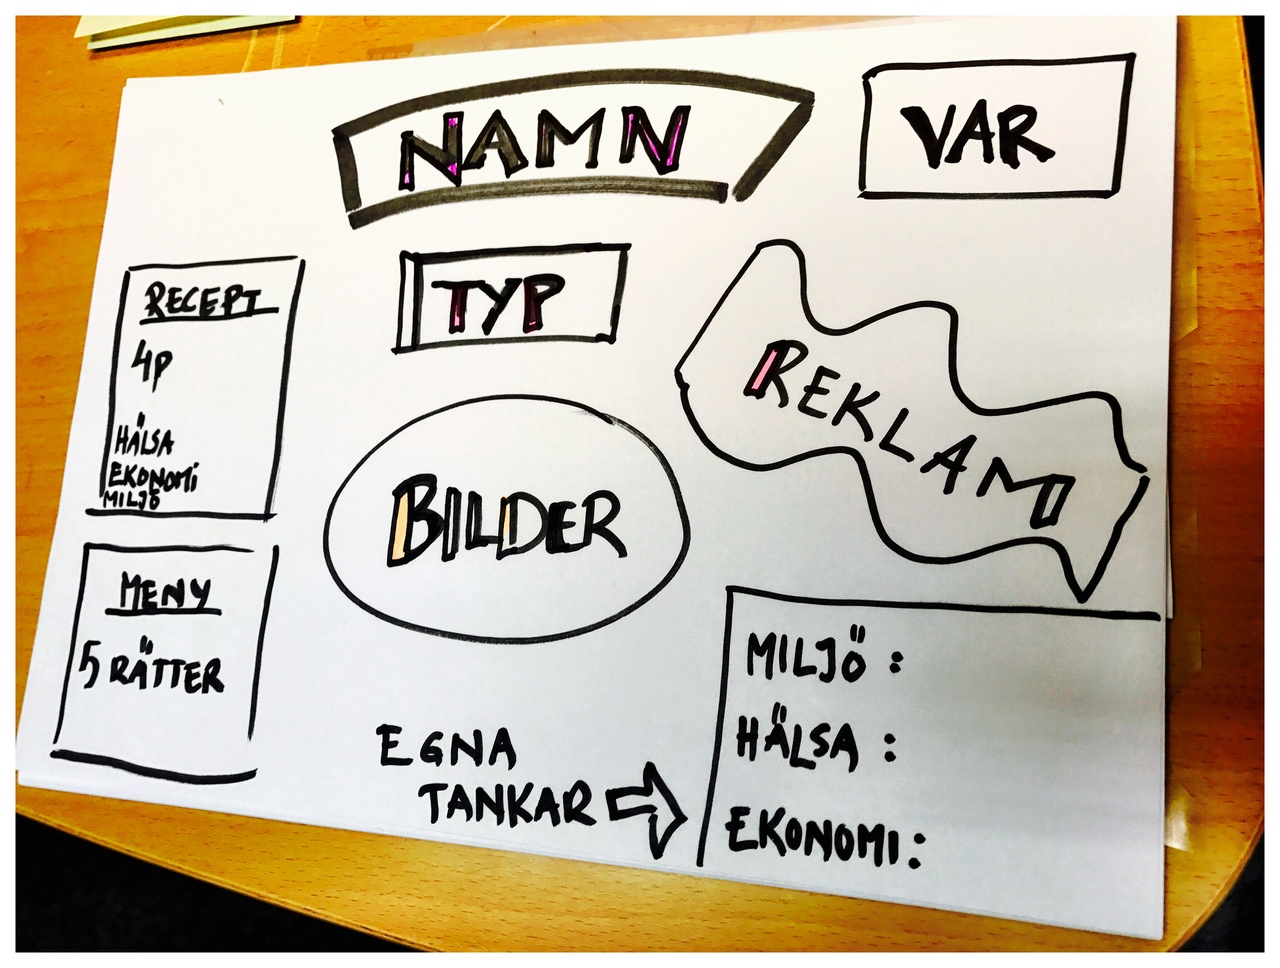 NAMN
VAR
RECEPT
4P
HÄLSA
EKONOMI
MILJÖ
TYP
REKLAM
BILDER
MENY
5 RÄTTER
EGNA
TANKAR
MILJÖ :
HÄLSA :
EKONOMI :